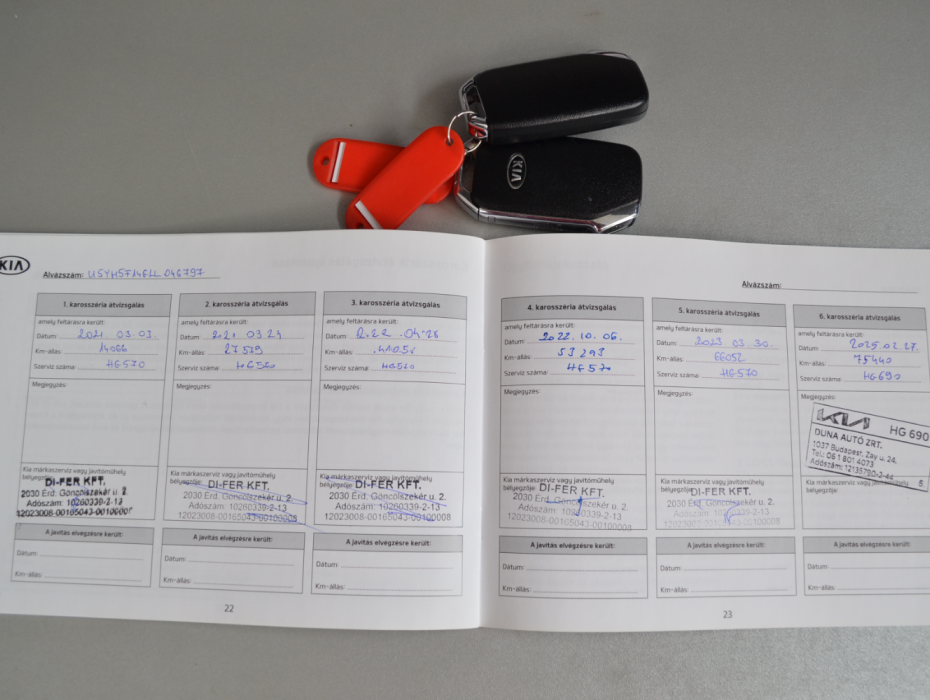 KIA
KIA
Alvázszám: U5YH5F14GLL046797
1. karosszéria átvizsgálás
amely feltárásra került:
Dátum: 2021. 03.03.
Km-állás: 14066
Szerviz száma: HG570
Megjegyzés:
Kia márkaszerviz vagy javítóműhely
bélyegzője:
DI-FER KFT.
2030 Érd, Göncölszekér u. 2.
Adószám: 10260339-2-13
12023008-00165043-00100008
A javítás elvégzésre került:
Dátum:
Km-állás:
2. karosszéria átvizsgálás
amely feltárásra került:
Dátum: 2021 03 24
Km-állás: 27579
Szerviz száma: HG570
Megjegyzés:
Kia márkaszerviz vagy javítóműhely
bélyegzője:
DI-FER KFT.
2030 Érd, Göncölszekér u. 2.
Adószám: 10260339-2-13
12023008-00165043-00100008
A javítás elvégzésre került:
Dátum:
Km-állás:
3. karosszéria átvizsgálás
amely feltárásra került:
Dátum:
Km-állás:
Szerviz száma: HG570
Megjegyzés:
Kia márkaszerviz vagy javítóműhely
bélyegzője:
DI-FER KFT.
2030 Érd, Göncölszekér u. 2.
Adószám: 10260339-2-13
12023008-00165043-00100008
A javítás elvégzésre került:
Dátum:
Km-állás:
22
Alvázszám:
4. karosszéria átvizsgálás
amely feltárásra került:
Dátum: 2022.10.06.
Km-állás: 53293
Szerviz száma: HG570
Megjegyzés:
Kia márkaszerviz vagy javítóműhely
bélyegzője:
DI-FER KFT.
2030 Érd, Göncölszekér u. 2.
Adószám: 10260339-2-13
12023008-00165043-00100008
A javítás elvégzésre került:
Dátum:
Km-állás:
5. karosszéria átvizsgálás
amely feltárásra került:
Dátum: 2023 03 30.
Km-állás: 66052
Szerviz száma: HG570
Megjegyzés:
Kia márkaszerviz vagy javítóműhely
bélyegzője:
DI-FER KFT.
2030 Érd, Göncölszekér u. 2.
Adószám: 10260339-2-13
12023008-00165043-00100008
A javítás elvégzésre került:
Dátum:
Km-állás:
6. karosszéria átvizsgálás
amely feltárásra került:
Dátum: 2025.02.27.
Km-állás: 75440
Szerviz száma: HG690
Megjegyzés:
KIA HG 690
DUNA AUTÓ ZRT.
1037 Budapest, Zay u. 24.
Tel.: 06 1 801 4073
Adószám: 12135780-2-44
8.
Kia márkaszerviz vagy javítóműhely
bélyegzője:
A javítás elvégzésre került:
Dátum:
Km-állás:
23